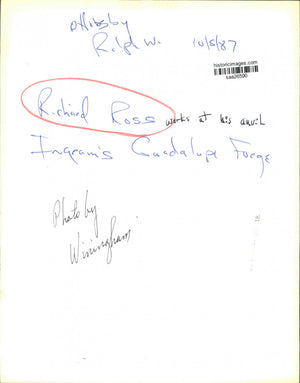 Ralph W. 10/5/87
historicimages.com
Richard Ross works at his anvil
Ingram's Guadalupe Forge
Photo by
Winingham